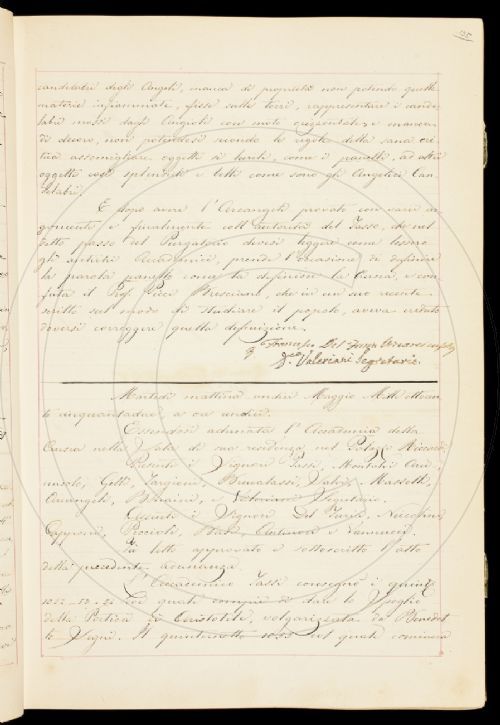 candidatri degli Angeli, manca di proprietà non potendo quelle
materie infiammate, fisse sulla terra, rappresentare i cande-
labri mossi dagli Angioli con moti e manca
di decoro, non potendosi secondo le regole della sana cri-
tica assomigliare oggetti sì turati, come i panelli, ad altri
oggetti così splendidi e belli come sono gli Angelici Can-
delabri.
E dopo avere l'Arcangeli provato con varii ar-
gomenti e finalmente coll'autorità del Tasso, che nel
detto passo del Purgatorio devesi leggere come lessero
gli antichi Accademici, prende l'occasione di definire
la parola panello come la definisce la Crusca, e con-
futa il Prof. Picci Bresciano, che in un suo recente
scritto sul modo di studiare il popolo, aveva creduto
doversi correggere quella definizione.
Francesco Del Furia
Valeriani Segretario.
Martedì mattina undici Maggio Mille ottocen-
to cinquantadue, a ore undici.
Essendosi adunata l'Accademia della
Crusca nella Sala di sua residenza nel Palazzo Riccardi
Presenti i Signori Tassi, Montalvi,
Gelli, Targioni, Brucalassi, Masselli,
Arcangeli, e Valeriani Segretario.
Assenti i Signori Del Furia, Niccolini
Capponi, e Vannucci.
Fu letto approvato e sottoscritto l'atto
della precedente adunanza.
L'Accademico Tassi consegnò i quint.
nei quali compiè di dare lo Spoglio
della Poetica di Aristotile, volgarizzata da Benedet-
to Segni. Il quinternetto nel quale comincia